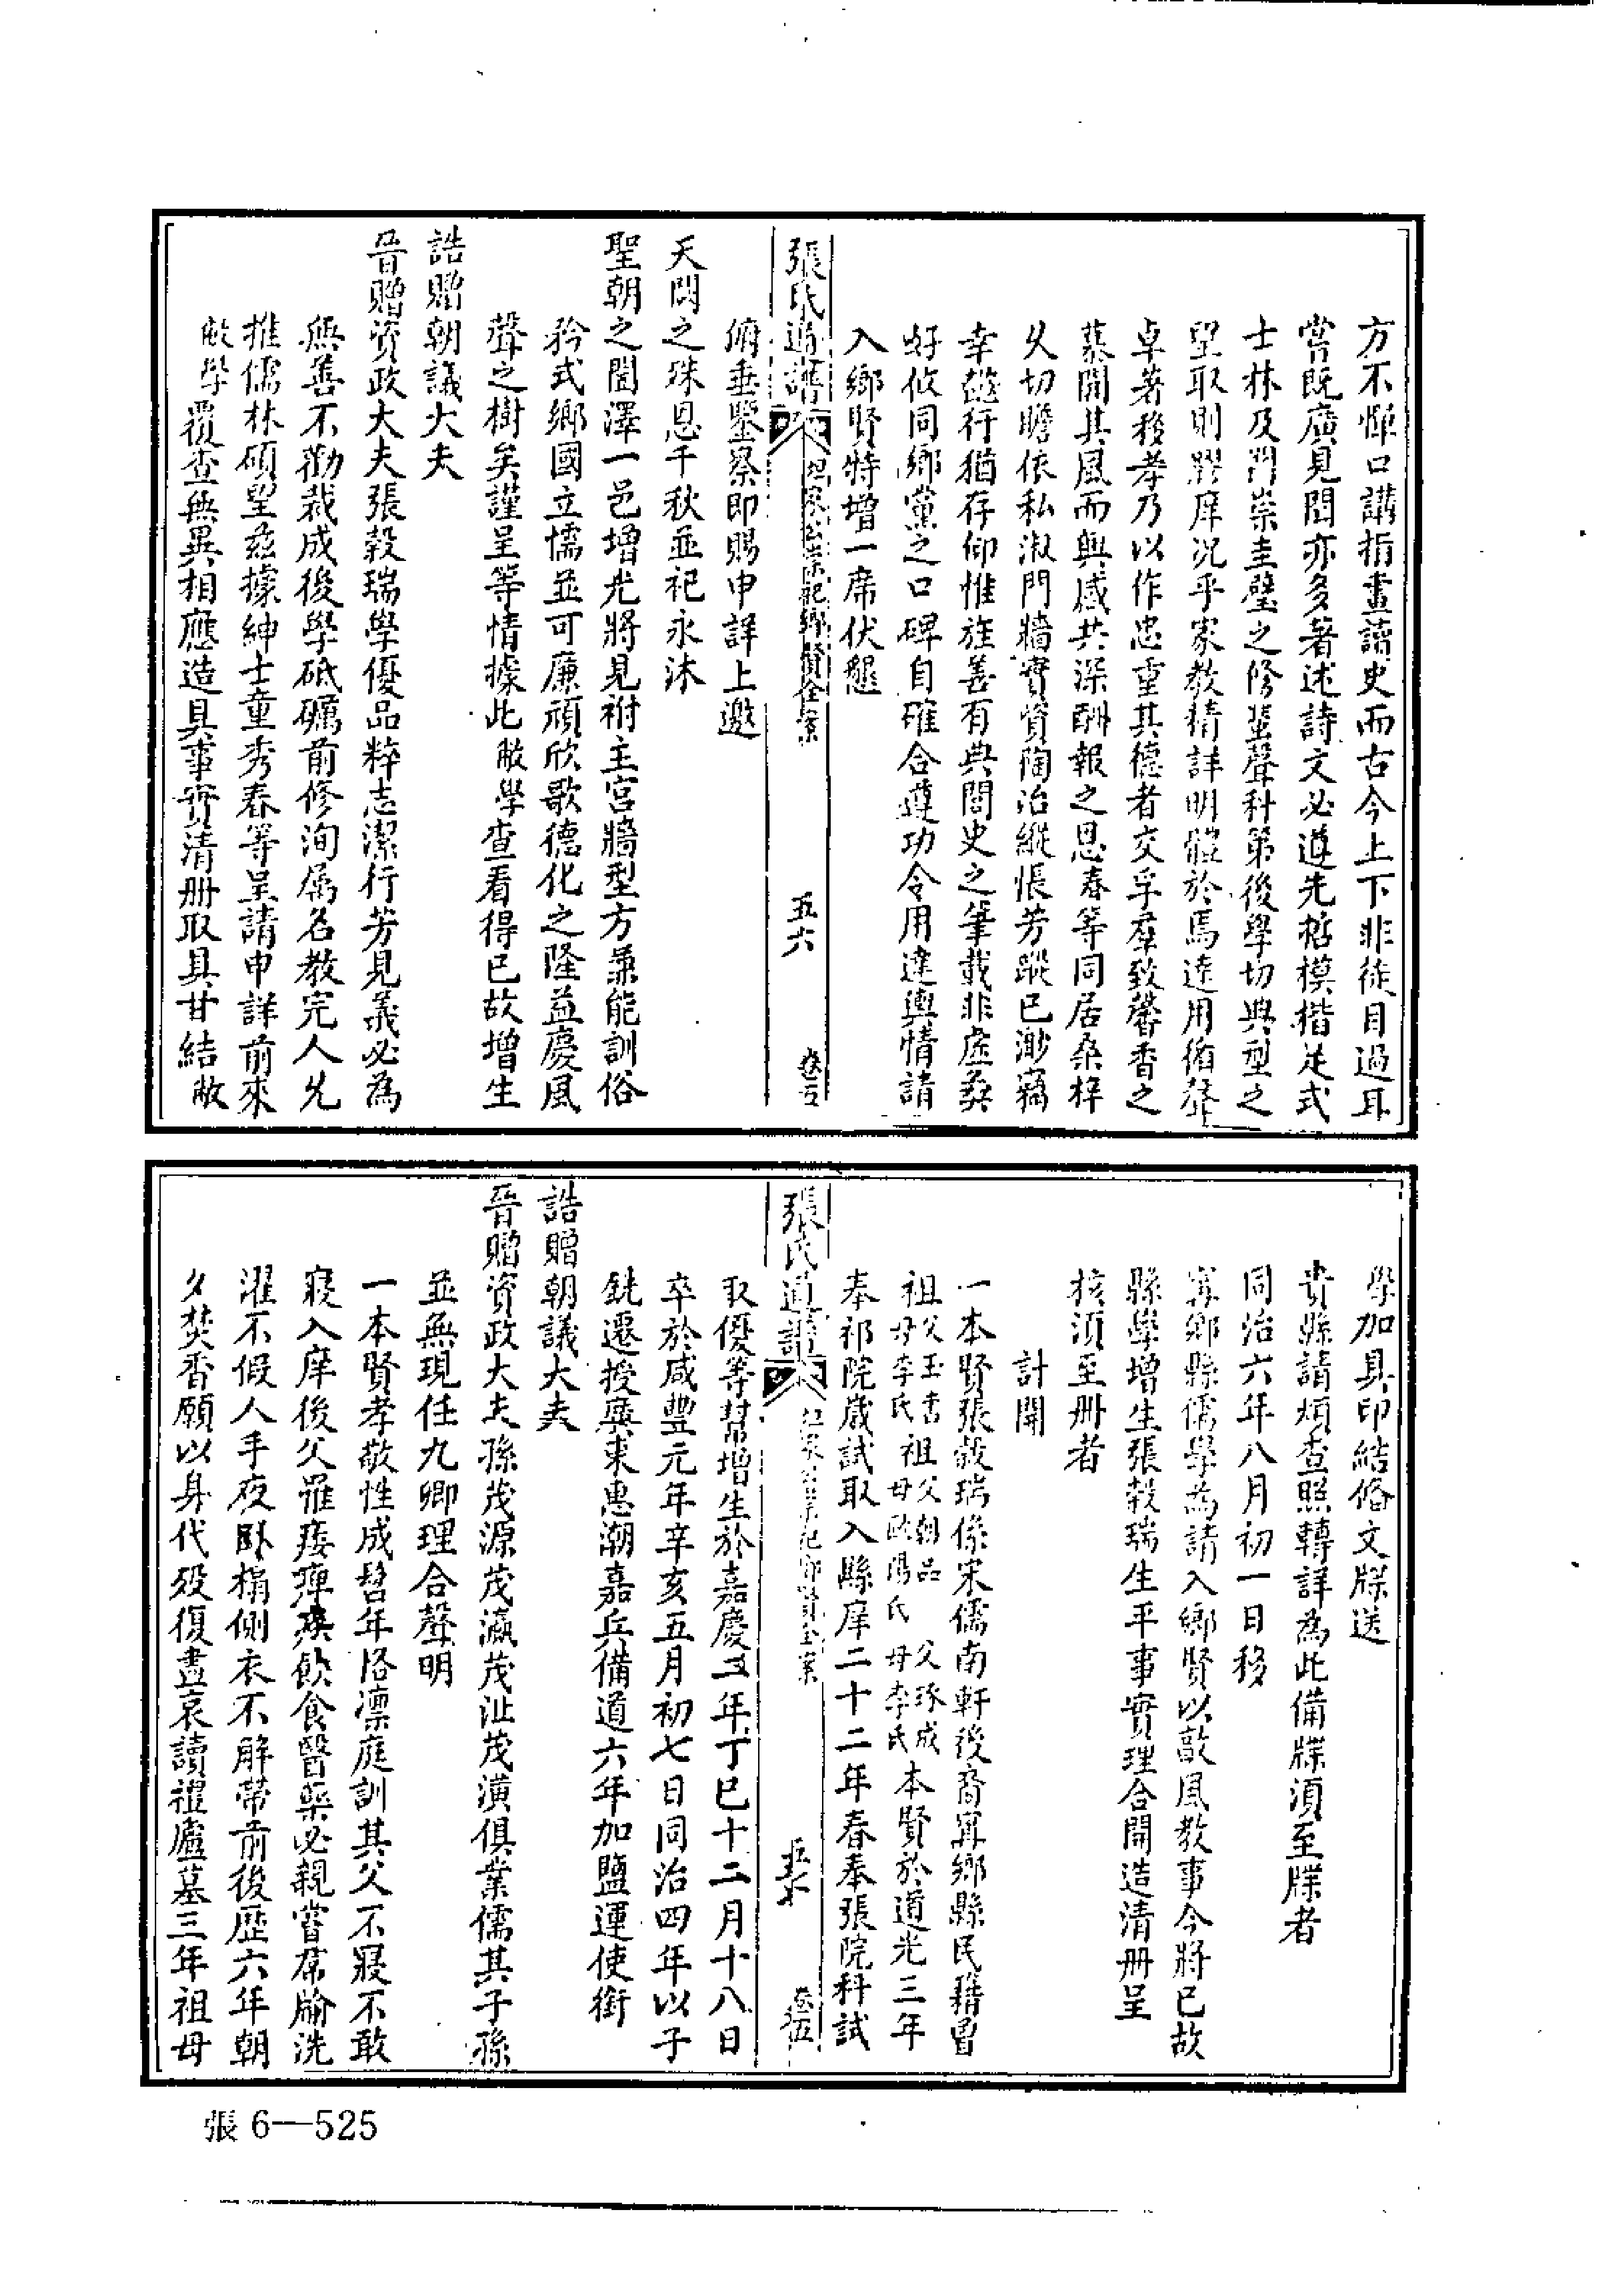 方不憚口講指畫讀史而古今上下非徒目過耳
嘗既廣見聞亦多著述詩文必遵先哲模楷足式
士林及門崇圭璧之修蜚聲科第後學切典型之
望取則膠庠况乎家教精詳明體於焉達用循聲
卓著移孝乃以作忠重其德者交孚羣致馨香之
慕聞其風而興感共深酬報之思春等同居桑梓
久切瞻依私淑門牆實資陶冶縱悵芳蹤已渺竊
幸懿行猶存仰惟旌善有典閭史之筆載非虛彝
好攸同鄉黨之口碑自確合遵功令用達輿情請
入鄉賢特增一席伏懇
張氏通譜 崇祀鄉賢全案 五六 卷五
俯垂鑒察即賜申詳上邀
天閶之殊恩千秋並祀永沐
聖朝之闓澤一邑增光將見祔主宮牆型方兼能訓俗
矜式鄉國立懦並可廉頑欣歌德化之隆益慶風
聲之樹矣謹呈等情據此敝學查看得已故增生
誥贈朝議大夫
晉贈資政大夫張穀瑞學優品粹志潔行芳見義必為
無善不勸裁成後學砥礪前修洵屬名教完人允
推儒林碩望茲據紳士童秀春等呈請申詳前來
敝學覆查無異相應造具事實清册取具甘結敝
學加具印結俻文牒送
貴縣請煩查照轉詳為此備牒須至牒者
同治六年八月初一日移
寗鄉縣儒學為請入鄉賢以敦風教事今將已故
縣學增生張穀瑞生平事實理合開造清册呈
核須至册者
計開
一本賢張穀瑞係宋儒南軒後裔寗鄉縣民籍曾
祖父玉書母李氏祖父朝品母歐陽氏父琢成母李氏本賢於道光三年
奉祁院歲試取入縣庠二十二年春奉張院科試
張氏通譜 崇祀鄉賢全案 五七 卷五
取優等幫增生於嘉慶二年丁巳十二月十八日
卒於咸豐元年辛亥五月初七日同治四年以子
銑遷授廣東惠潮嘉兵備道六年加鹽運使銜
誥贈朝議大夫
晉贈資政大夫孫茂源茂瀛茂沚茂潢俱業儒其子孫
並無現任九卿理合聲明
一本賢孝敬性成髫年恪凛庭訓其父不寢不敢
寢入庠後父罹痿痺疾飲食醫藥必親嘗席牏洗
濯不假人手夜臥榻側衣不解帶前後歷六年朝
夕焚香願以身代歿復盡哀讀禮廬墓三年祖母
張6—525